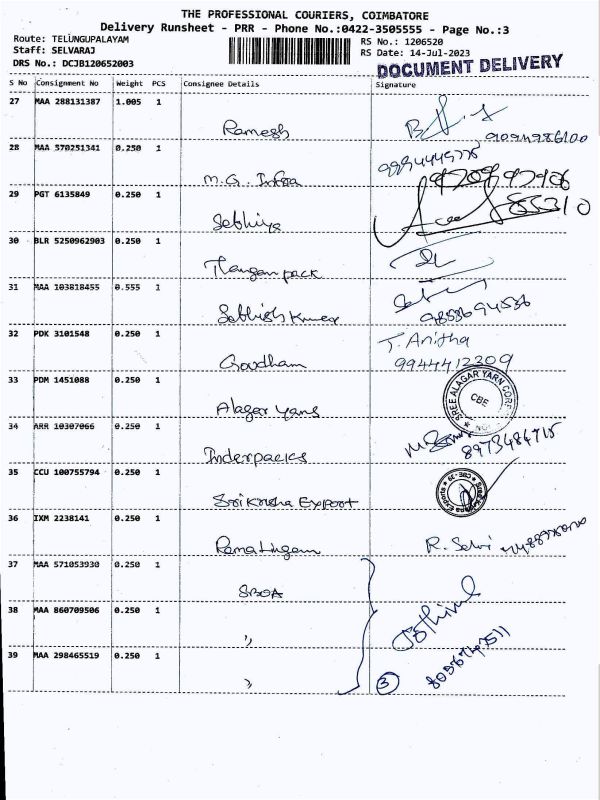 THE PROFESSIONAL COURIERS, COIMBATORE
Delivery Runsheet - PRR - Phone No.:0422-3505555 - Page No.:3
Route: TELUNGUPALAYAM RS No.: 1206520
Staff: SELVARAJ RS Date: 14-Jul-2023
DRS No.: DCJB120652003 DOCUMENT DELIVERY
S No Consignment No Weight PCS Consignee Details Signature
27 MAA 288131387 1.005 1
Ramesh
28 MAA 570251341 0.250 1
M.G. Infra
29 PGT 6135849 0.250 1
30 BLR 5250962903 0.250 1
pack
31 MAA 103818455 0.555 1
32 PDK 3101548 0.250 1 T. Anitha
Goudham 9944412309
33 PDM 1451088 0.250 1
Alagar yans
SREE ALAGAR YARN CORP
CBE
34 ARR 10307066 0.250 1
Inderpacks 8973484715
35 CCU 100755794 0.250 1
Srikrisha Export
36 IXM 2238141 0.250 1
Ramalingam R. Selvi
37 MAA 571053930 0.250 1
SBOA
38 MAA 860709506 0.250 1
,,
39 MAA 298465519 0.250 1
,, 3